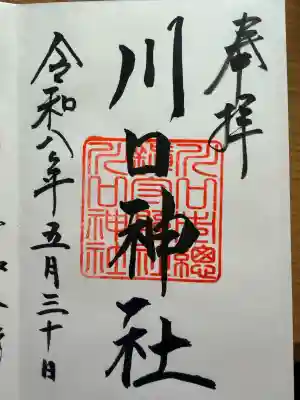 奉拝
川口神社
令和八年五月三十日